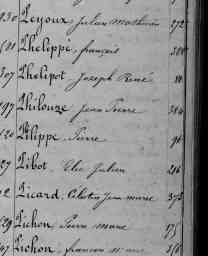 930 Peyoux Julien Mathurin 272
Phelippé, françois 380
307 Phelipot Joseph René 80
197 Philouze Jean Pierre 384
Phlippe Pierre 96
27 Pibot, Elie Julien 216
2 Picard, Célestin Jean marie 373
29 Pichon, Pierre marie 175
47 Pichon, francois